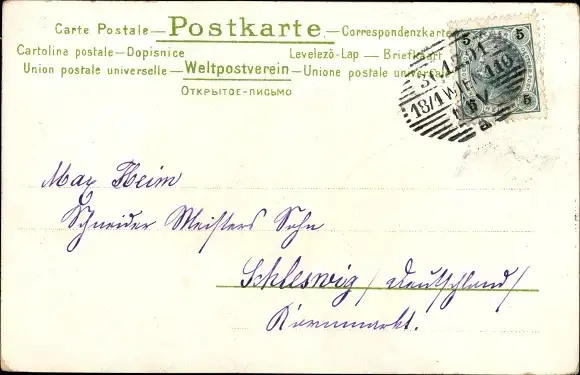 Carte Postale — Postkarte — Correspondenzkarte
Cartolina postale — Dopisnice Levelező-Lap — Briefkaart
Union postale universelle — Weltpostverein — Unione postale universale
Открытое-письмо
5 5
5
18/1 WIEN 110
Max Heim
Schneider Meisters Sohn
Schleswig / Deutschland /
Kornmarkt.